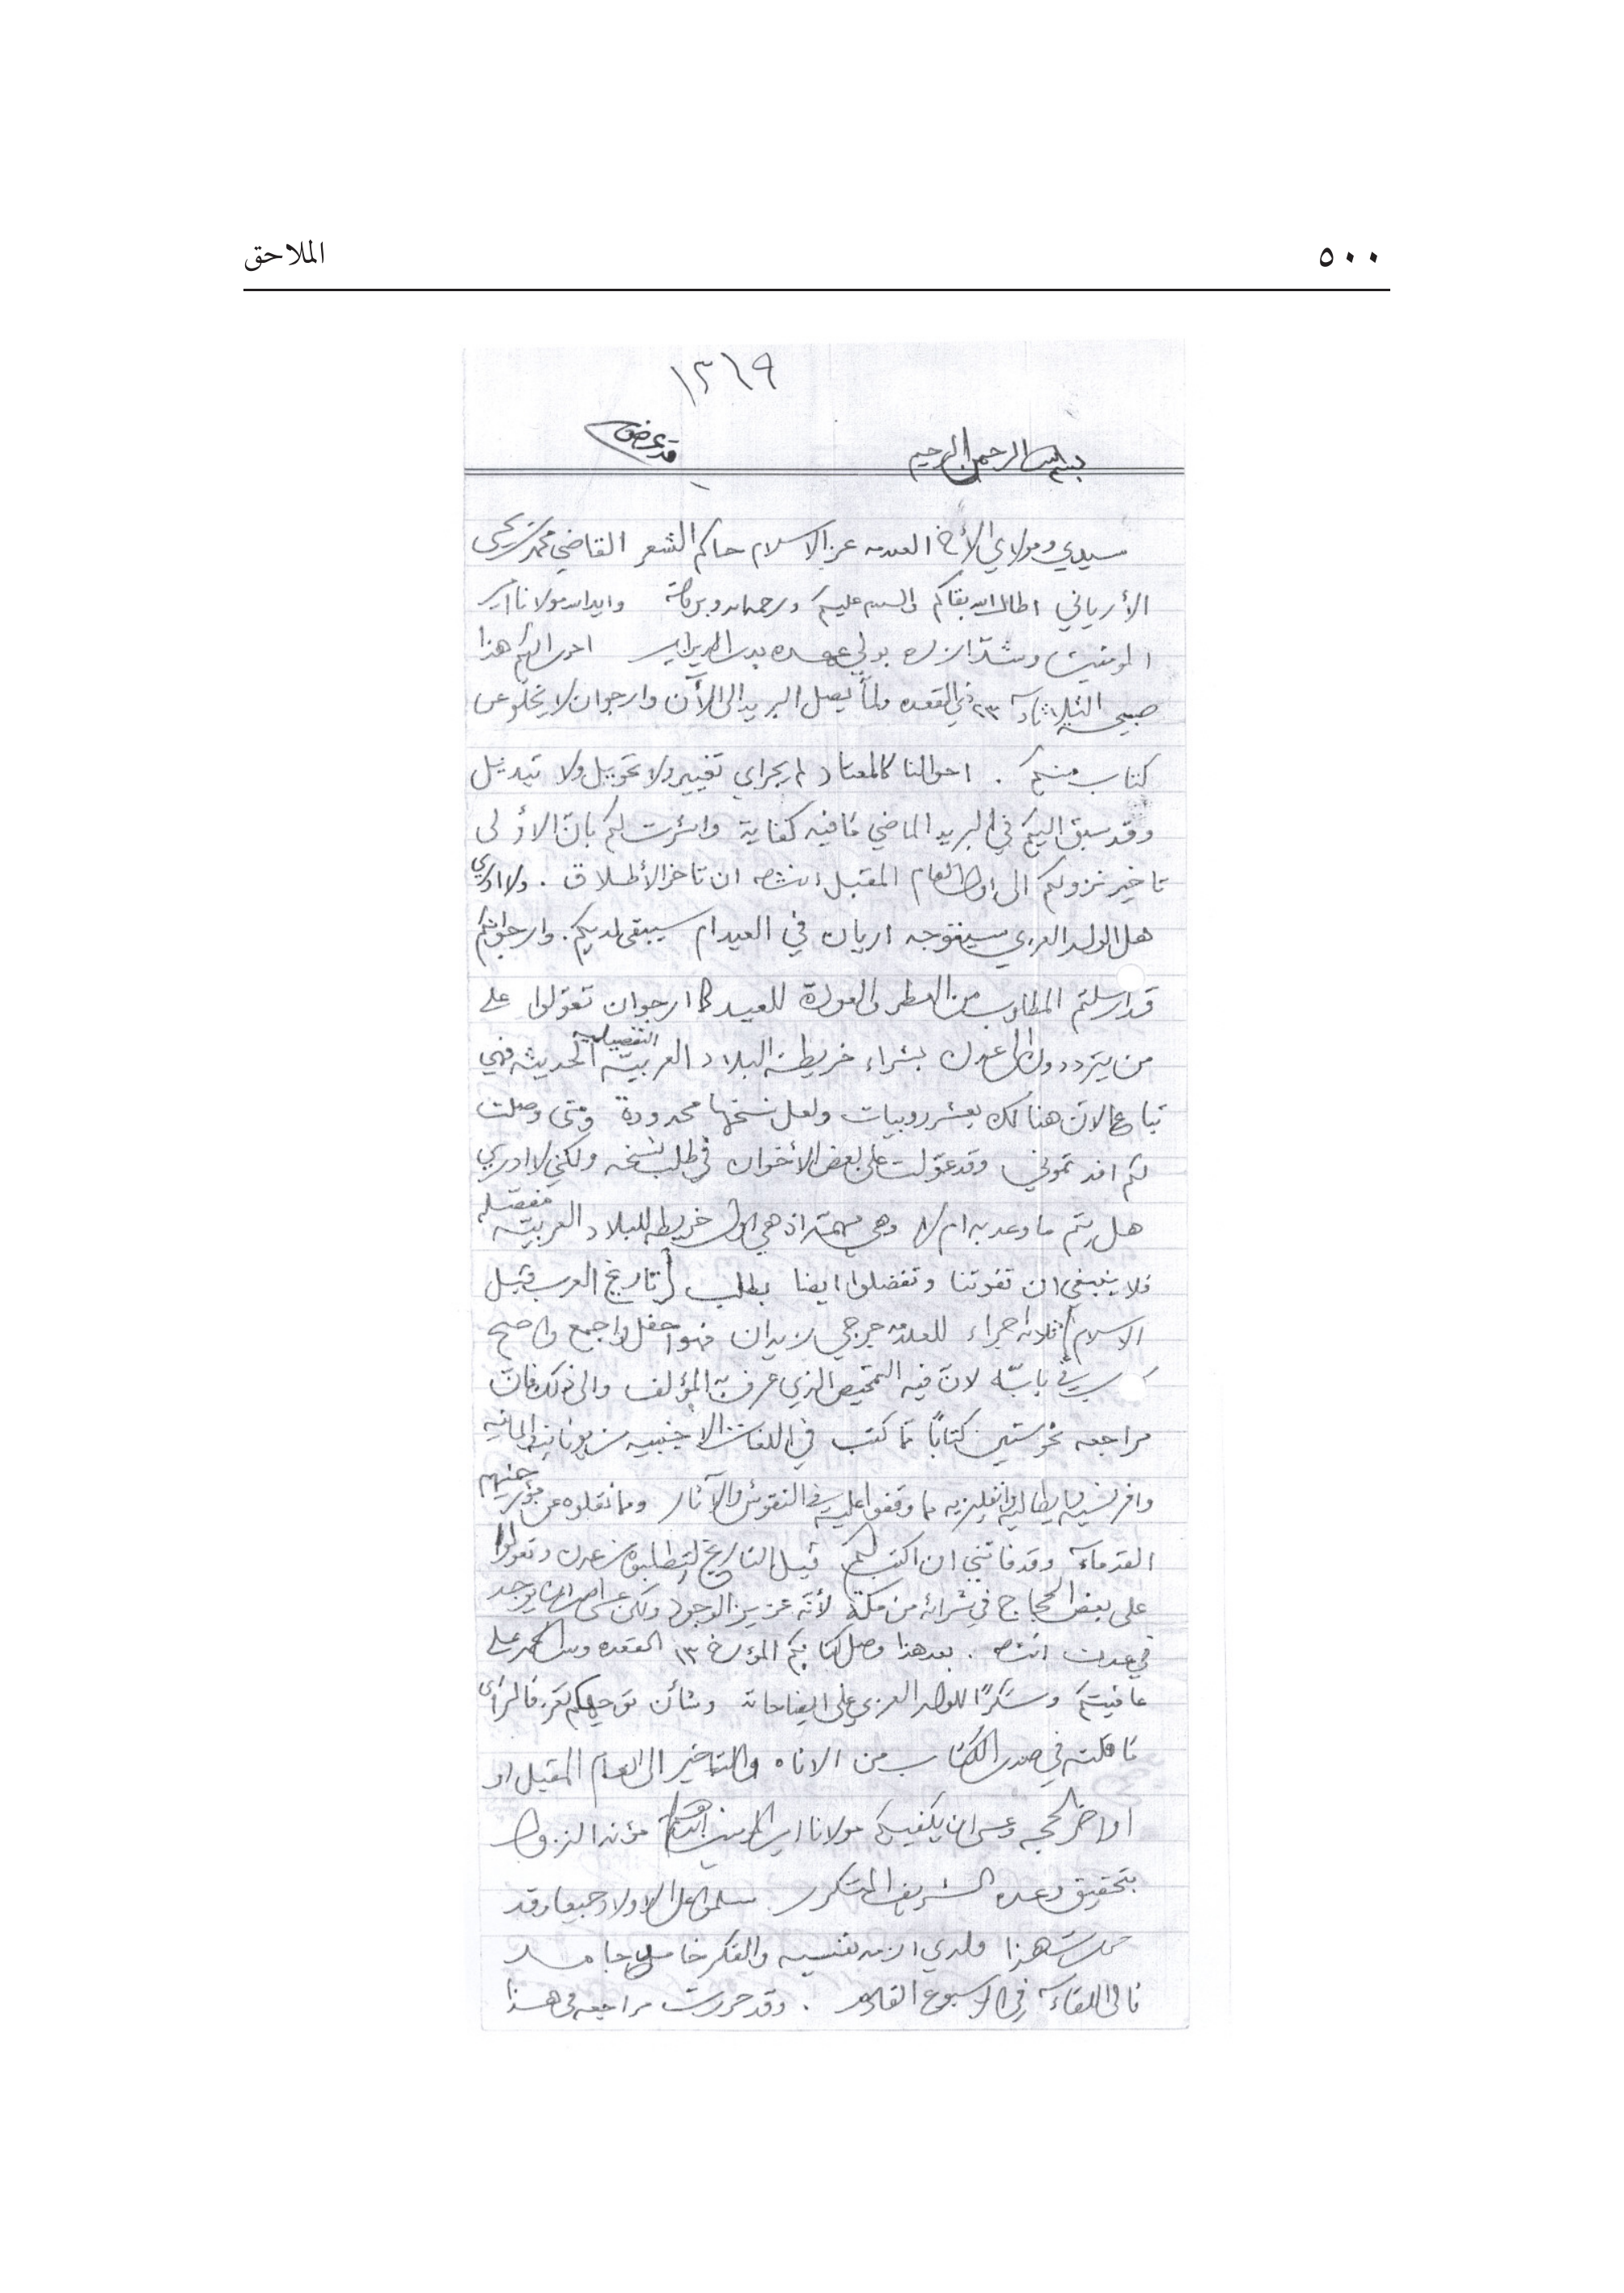 ٥٠٠
الملاحق
١٣٦٩
بسم الله الرحمن الرحيم
سيدي ومولاي الأخ العلامه عز الاسلام حاكم الشعر القاضي محمد بن يحيى
الأرياني اطال الله بقاكم والسلم عليكم ورحمة الله وبركاته وايد الله مولانا امير
المومنين وشد ازره بولي عهده احرر اليكم هذا
صبيحة الثلاثاء ٢٣ ذي القعده ولمّا يصل البريد الى الآن وارجوان لا يخلو عن
كتاب منكم . احوالنا كالمعتاد لم يجر اي تغيير ولا تحويل ولا تبديل
وقد سبق اليكم في البريد الماضي مافيه كفاية واشرت لكم بانّ الأولى
تاخير نزولكم الى اول العام المقبل انشاالله ان تاخر الأطلاق . ولا ادري
هل الولد العزي سيتوجه اريان في العيد ام سيبقى لديكم . وارجو انكم
قد ارسلتم المطلوب من العطر للعيد كما ارجوان تعوّلوا على
من يترددون الى عدن بشراء خريطة البلاد العربيّة التفصيلية الحديثه فهي
تباع الان هنالك بعشر روبيات ولعل نسخها محدودة ومتى وصلت
لكم افدتموني وقد عوّلت على بعض الأخوان في طلب نسخه ولكني لا ادري
هل يتم ما وعد به ام لا وهي مهمة اذ هي اول خريطه للبلاد العربيّه مفصّله
فلا ينبغي ان تفوتنا وتفضلوا ايضا بطلب (تاريخ العرب قبل
الاسلام) ثلاثه اجزاء للعلامه جرجي زيدان فهو احفل واجمع واصح
في بابه لانّ فيه التمحيص الذي عرف به المؤلف والى ذلك فانّ
مراجعه نحو ستين كتابًا مما كتب في اللغات الاجنبيه من يونانيه والمانيه
وافرنسيه وايطاليه وانقليزيه مما وقفوا عليه في النقوش والآثار ومما نقلوه عن مؤرخيهم
القدمآء وقد فاتني ان اكتب لكم قبل التاريخ لتطلبوه من عدن وتعولوا
على بعض الحجاج في شرائه من مكة لأنّه عزيز الوجود ولكن عسى ان يوجد
في عدن انشاالله . بعد هذا وصل كتابكم المؤرخ ١٣ القعده ولله الحمد على
عافيتكم وشكرًا للولد العزي على ايضاحاته وشأن توجهكم تعز فالرأي
ما قلته في صدر الكتاب من الاناه والتاخير الى العام المقبل او
اواخر الحجه وعسى ان يكفيكم مولانا امير المومنين مؤنه النزول
بتحقيق وعده الشريف المتكرر سلموا على الاولاد جميعا وقد
حررت هذا ولدي ازمه نفسيه والفكر خامل جامد
فالى اللقآء في الاسبوع القادم . وقد حررت مراجعه في هذا